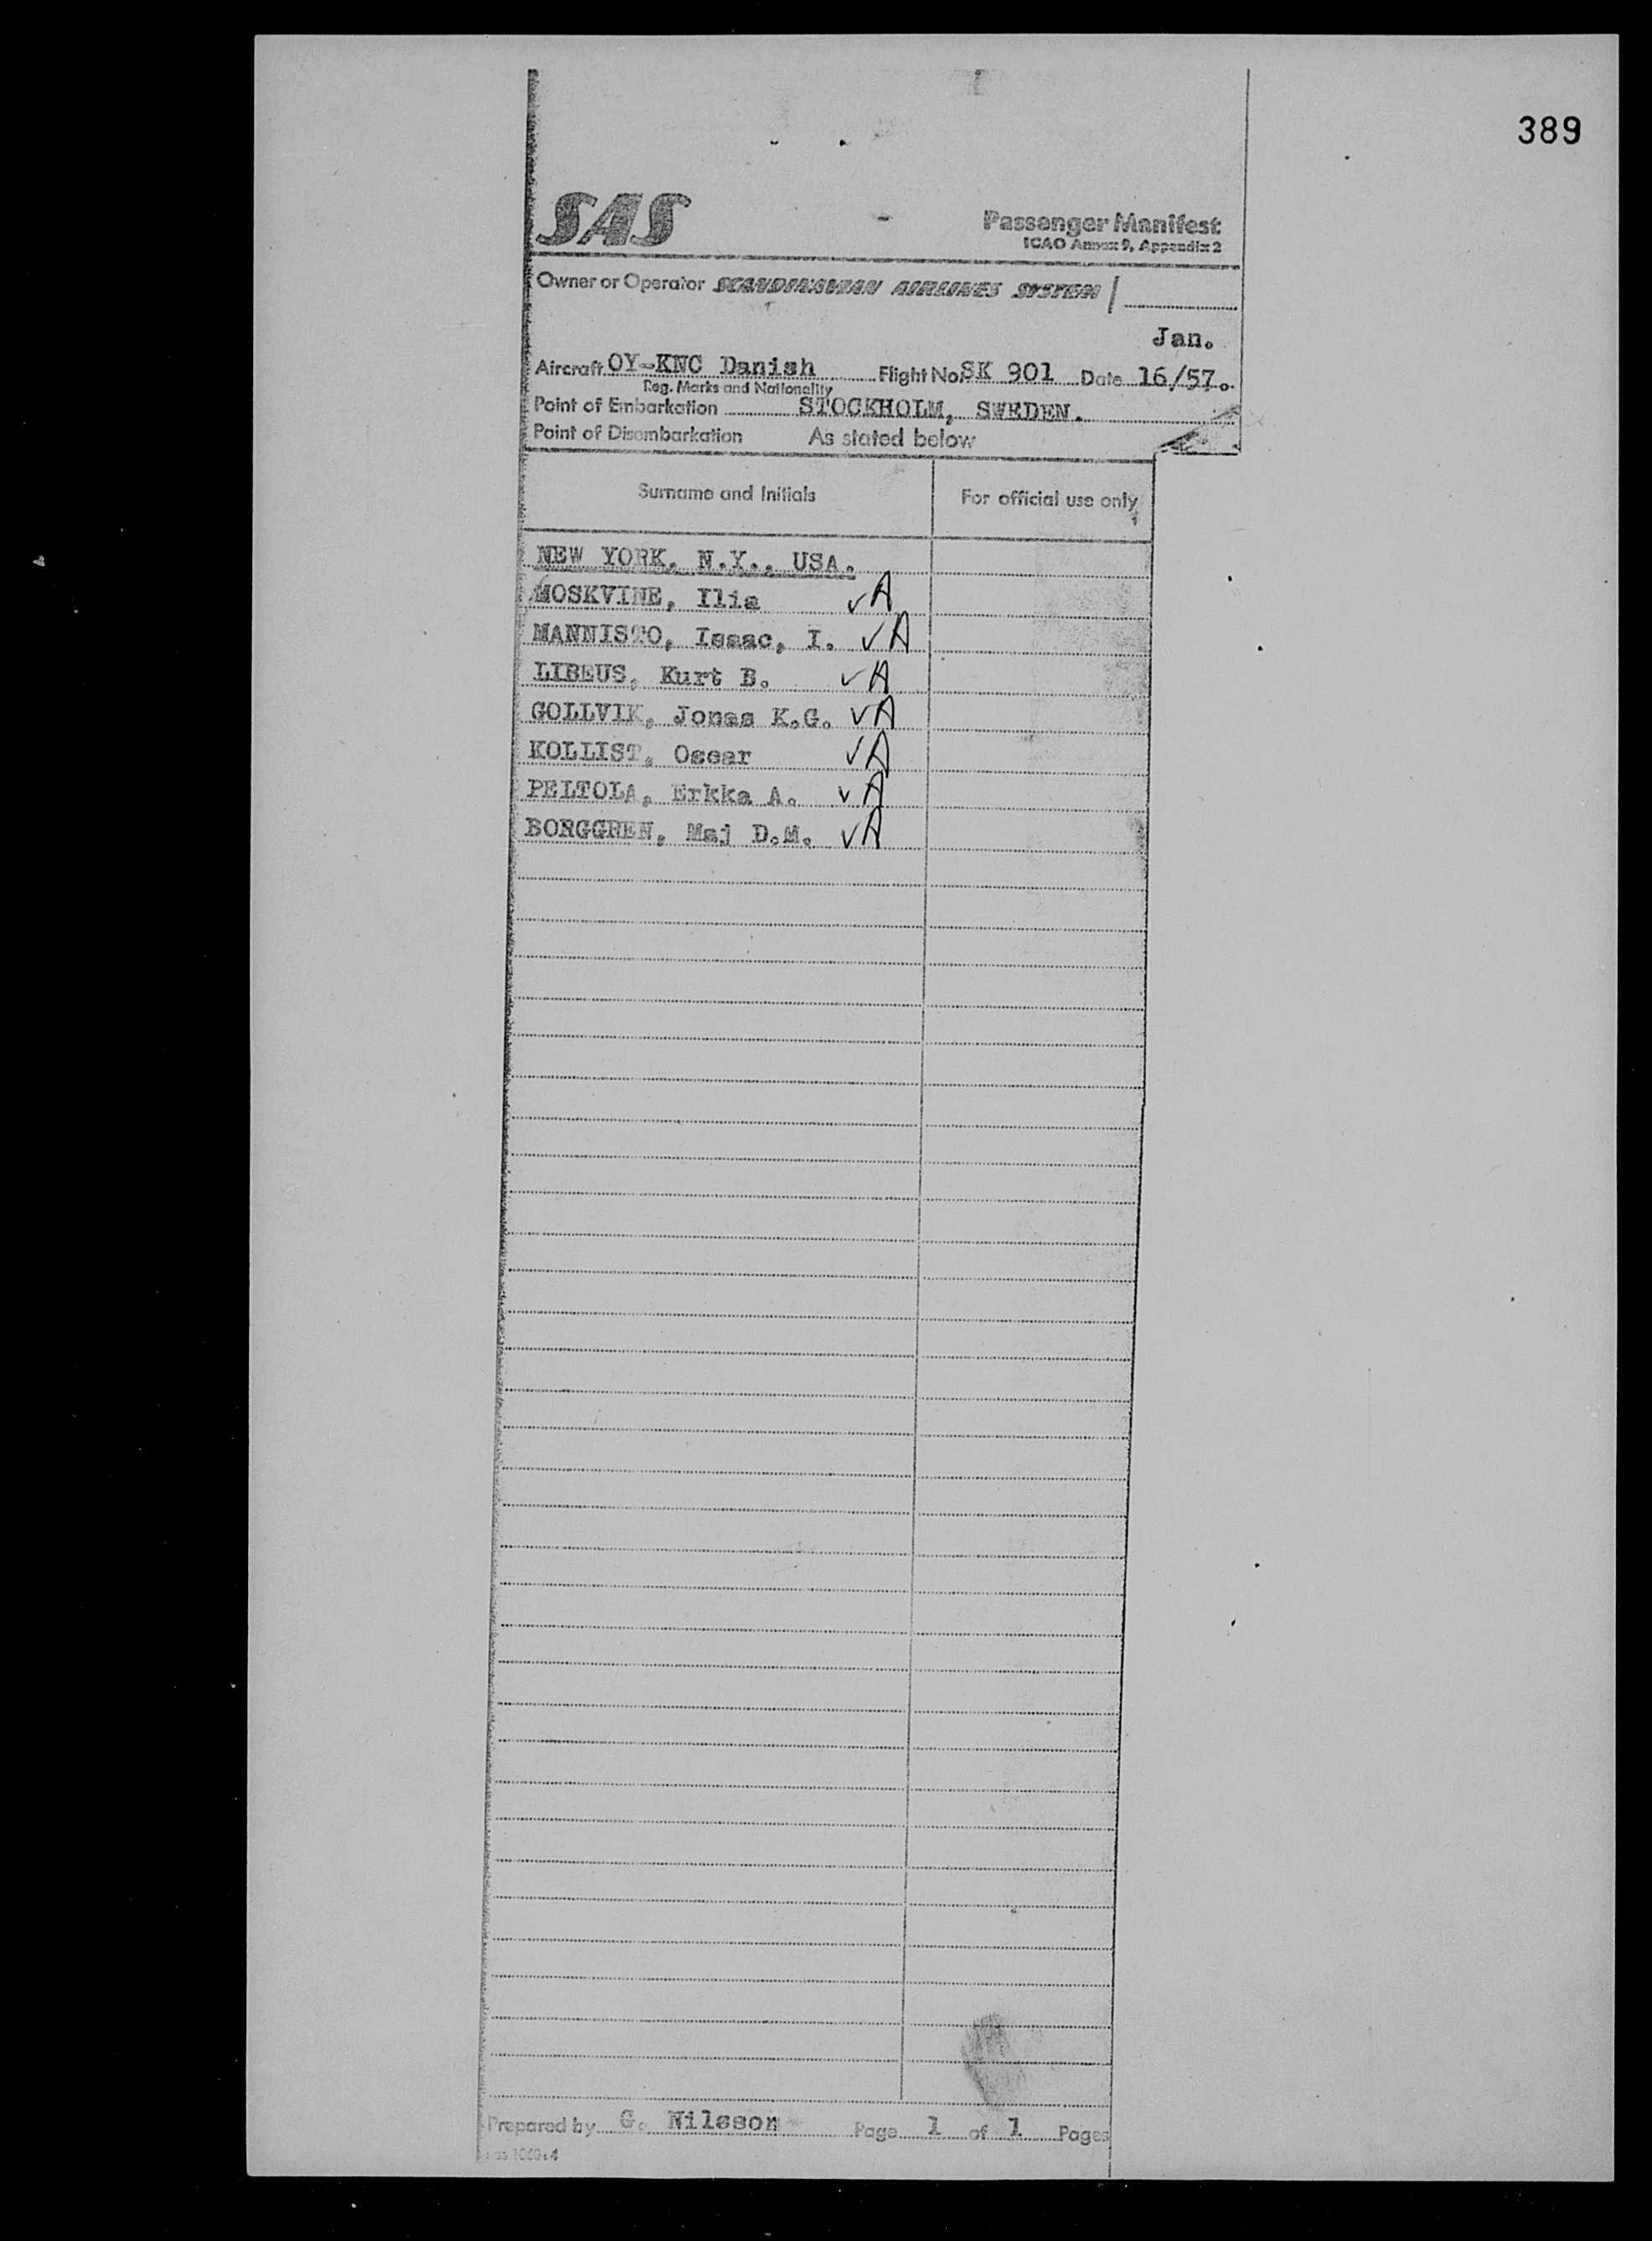 389
SAS
Passenger Manifest
ICAO Annex 9, Appendix 2
Owner or Operator SCANDINAVIAN AIRLINES SYSTEM
Jan.
Aircraft OY-KNC Danish Flight No. SK 901 Date 16/57.
Reg. Marks and Nationality
Point of Embarkation STOCKHOLM, SWEDEN.
Point of Disembarkation As stated below
Surname and Initials For official use only
NEW YORK, N.Y., USA.
MOSKVINE, Ilia ✓A
MANNISTO, Isaac, I. ✓A
LIBEUS, Kurt B. ✓A
GOLLVIK, Jonas K.G. ✓A
KOLLIST, Oscar ✓A
PELTOLA, Erkka A. ✓A
BORGGREN, Maj D.M. ✓A
Prepared by G. Nilsson Page 1 of 1 Pages